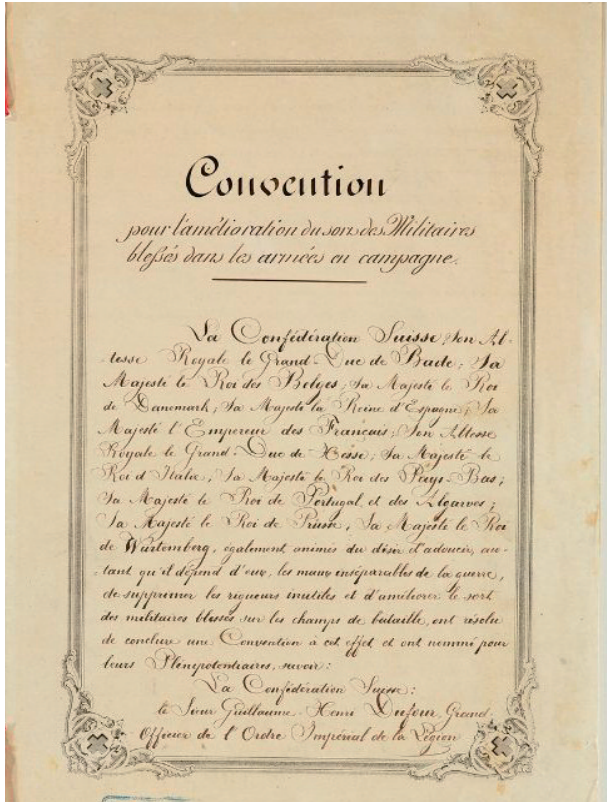 Convention
pour l'amélioration du sort des Militaires
blessés dans les armées en campagne.
La Confédération Suisse; Son Al-
tesse Royale le Grand-Duc de Bade; Sa
Majesté le Roi des Belges; Sa Majesté le Roi
de Danemark; Sa Majesté la Reine d'Espagne; Sa
Majesté l'Empereur des Français; Son Altesse
Royale le Grand-Duc de Hesse; Sa Majesté le
Roi d'Italie; Sa Majesté le Roi des Pays-Bas;
Sa Majesté le Roi de Portugal et des Algarves;
Sa Majesté le Roi de Prusse, Sa Majesté le Roi
de Würtemberg, également animés du désir d'adoucir, au-
tant qu'il dépend d'eux, les maux inséparables de la guerre,
de supprimer les rigueurs inutiles et d'améliorer le sort
des militaires blessés sur les champs de bataille, ont résolu
de conclure une Convention à cet effet et ont nommé pour
leurs Plénipotentiaires, savoir:
La Confédération Suisse:
le Sieur Guillaume-Henri Dufour, Grand
Officier de l'Ordre Impérial de la Légion